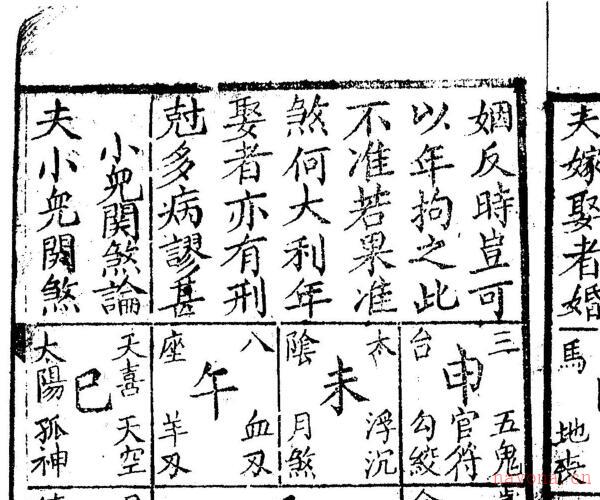 夫嫁娶者婚
姻反時豈可
以年拘之此
不准若果准
煞何大利年
娶者亦有刑
尅多病謬甚
小兒関煞論
夫小兒関煞
馬
地喪
三台
申
五鬼
官符
勾絞
太陰
未
浮沉
月煞
八座
午
血刃
羊刃
天喜
天空
巳
太陽
孤神
nayona.cn